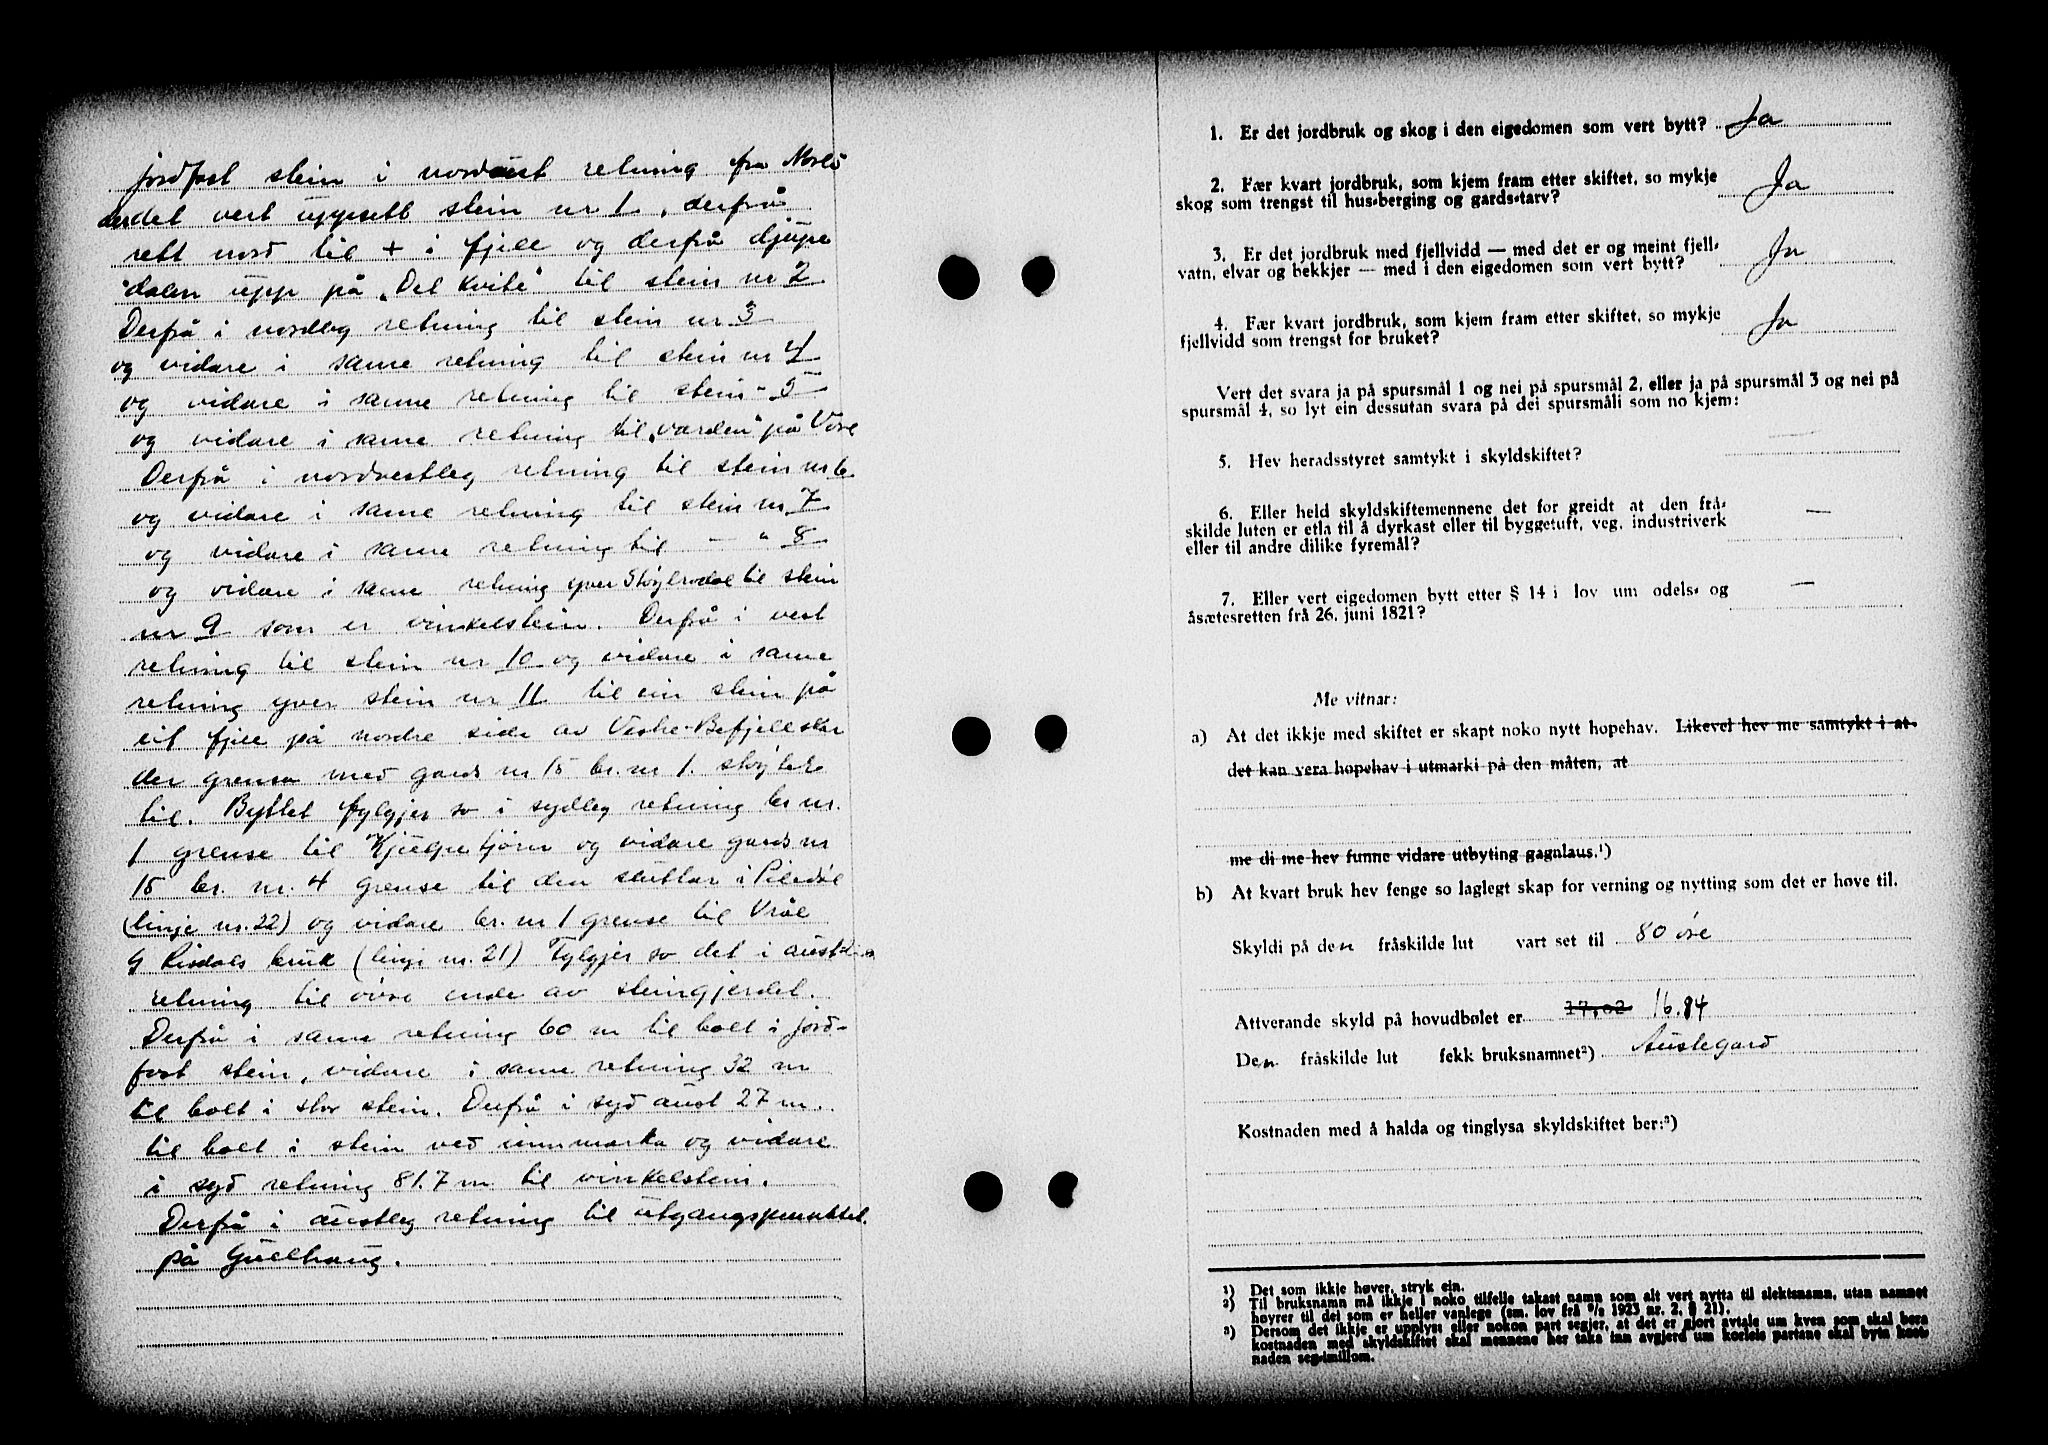 jordfast stein i nordaust retning fra
der det vert uppsett stein nr 1, derfrå
rett nord til + i fjell og derfrå djupe
dalen upp på „Del Kvite" til stein nr 2
Derfrå i nordleg retning til stein nr 3
og vidare i same retning til stein nr 4
og vidare i same retning til stein - 5
og vidare i same retning til „varden" på
Derfrå i nordvestleg retning til stein nr 6.
og vidare i same retning til stein nr 7
og vidare i same retning til — " 8
og vidare i same retning yver til stein
nr 9 som er vinkelstein. Derfrå i vest
retning til stein nr 10 og vidare i same
retning yver stein nr 11 til ein stein på
eit fjell på nordre side av Vestre-Befjellskar
der grensa med gards nr 15 br. nr 1. støyter
til. Byttet fylgjer so i sydleg retning br nr.
1 grense til Kjupetjørn og vidare gards nr
15 br. nr. 4 grense til den i
(linje nr. 22) og vidare br. nr 1 grense til
G Risdals bruk (linje nr. 21) Fylgjer so det i
retning til øvre ende av steingjerdet.
Derfrå i same retning 60 m til bolt i jord-
fast stein, vidare i same retning 32 m
til bolt i stor stein. Derfrå i syd aust 27 m.
til bolt i stein ved innmarka og vidare
i syd retning 81.7 m til vinkelstein.
Derfrå i austleg retning til utgangspunktet.
på Gullhaug.
1. Er det jordbruk og skog i den eigedomen som vert bytt? Ja
2. Fær kvart jordbruk, som kjem fram etter skiftet, so mykje
skog som trengst til hus-berging og gards-tarv? Ja
3. Er det jordbruk med fjellvidd — med det er og meint fjell-
vatn, elvar og bekkjer — med i den eigedomen som vert bytt? Ja
4. Fær kvart jordbruk, som kjem fram etter skiftet, so mykje
fjellvidd som trengst for bruket? Ja
Vert det svara ja på spursmål 1 og nei på spursmål 2, eller ja på spursmål 3 og nei på
spursmål 4, so lyt ein dessutan svara på dei spursmåli som no kjem:
5. Hev heradsstyret samtykt i skyldskiftet? —
6. Eller held skyldskiftemennene det for greidt at den frå-
skilde luten er etla til å dyrkast eller til byggetuft, veg, industriverk
eller til andre dilike fyremål? —
7. Eller vert eigedomen bytt etter § 14 i lov um odels- og
åsætesretten frå 26. juni 1821? —
Me vitnar:
a) At det ikkje med skiftet er skapt noko nytt hopehav. Likevel hev me samtykt i at-
det kan vera hopehav i utmarki på den måten, at
me di me hev funne vidare utbyting gagnlaus.¹)
b) At kvart bruk hev fenge so laglegt skap for verning og nytting som det er høve til.
Skyldi på den fråskilde lut vart set til 80 øre
Attverande skyld på hovudbølet er 17,02 16.84
Den fråskilde lut fekk bruksnamnet²) Austegard
Kostnaden med å halda og tinglysa skyldskiftet ber:³)
¹) Det som ikkje høver, stryk ein.
²) Til bruksnamn må ikkje i noko tilfelle takast namn som alt vert nytta til slektsnamn, utan namnet
høyrer til dei som er heller vanlege (sm. lov frå ⁹/₂ 1923 nr. 2, § 21).
³) Dersom det ikkje er upplyst eller nokon part segjer, at det er gjort avtale um kven som skal bera
kostnaden med skyldskiftet skal mennene her taka inn avgjerd um korleis partane skal byta kost-
naden seg-imillom.